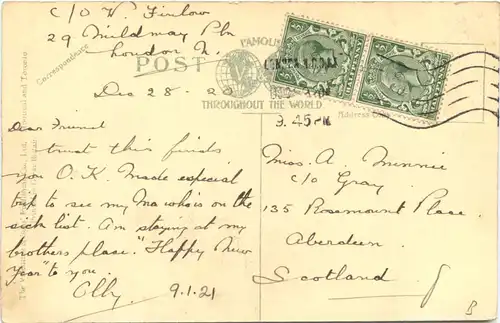 c/o W. Finlow
29 Mildmay Pk
London N.
Dec 28 - 20
Correspondence
POST
FAMOUS
LONDON
THROUGHOUT THE WORLD
9.45 PM
Address Only
Dear Friend
trust this finds
you O.K. Made especial
trip to see my Ma who is on the
sick list. Am staying at my
brothers plase. "Happy New
Year" to you.
Olly 9.1.21
Miss. A. Minnie
c/o Gray.
135 Rosemount Plase.
Aberdeen.
Scotland
B